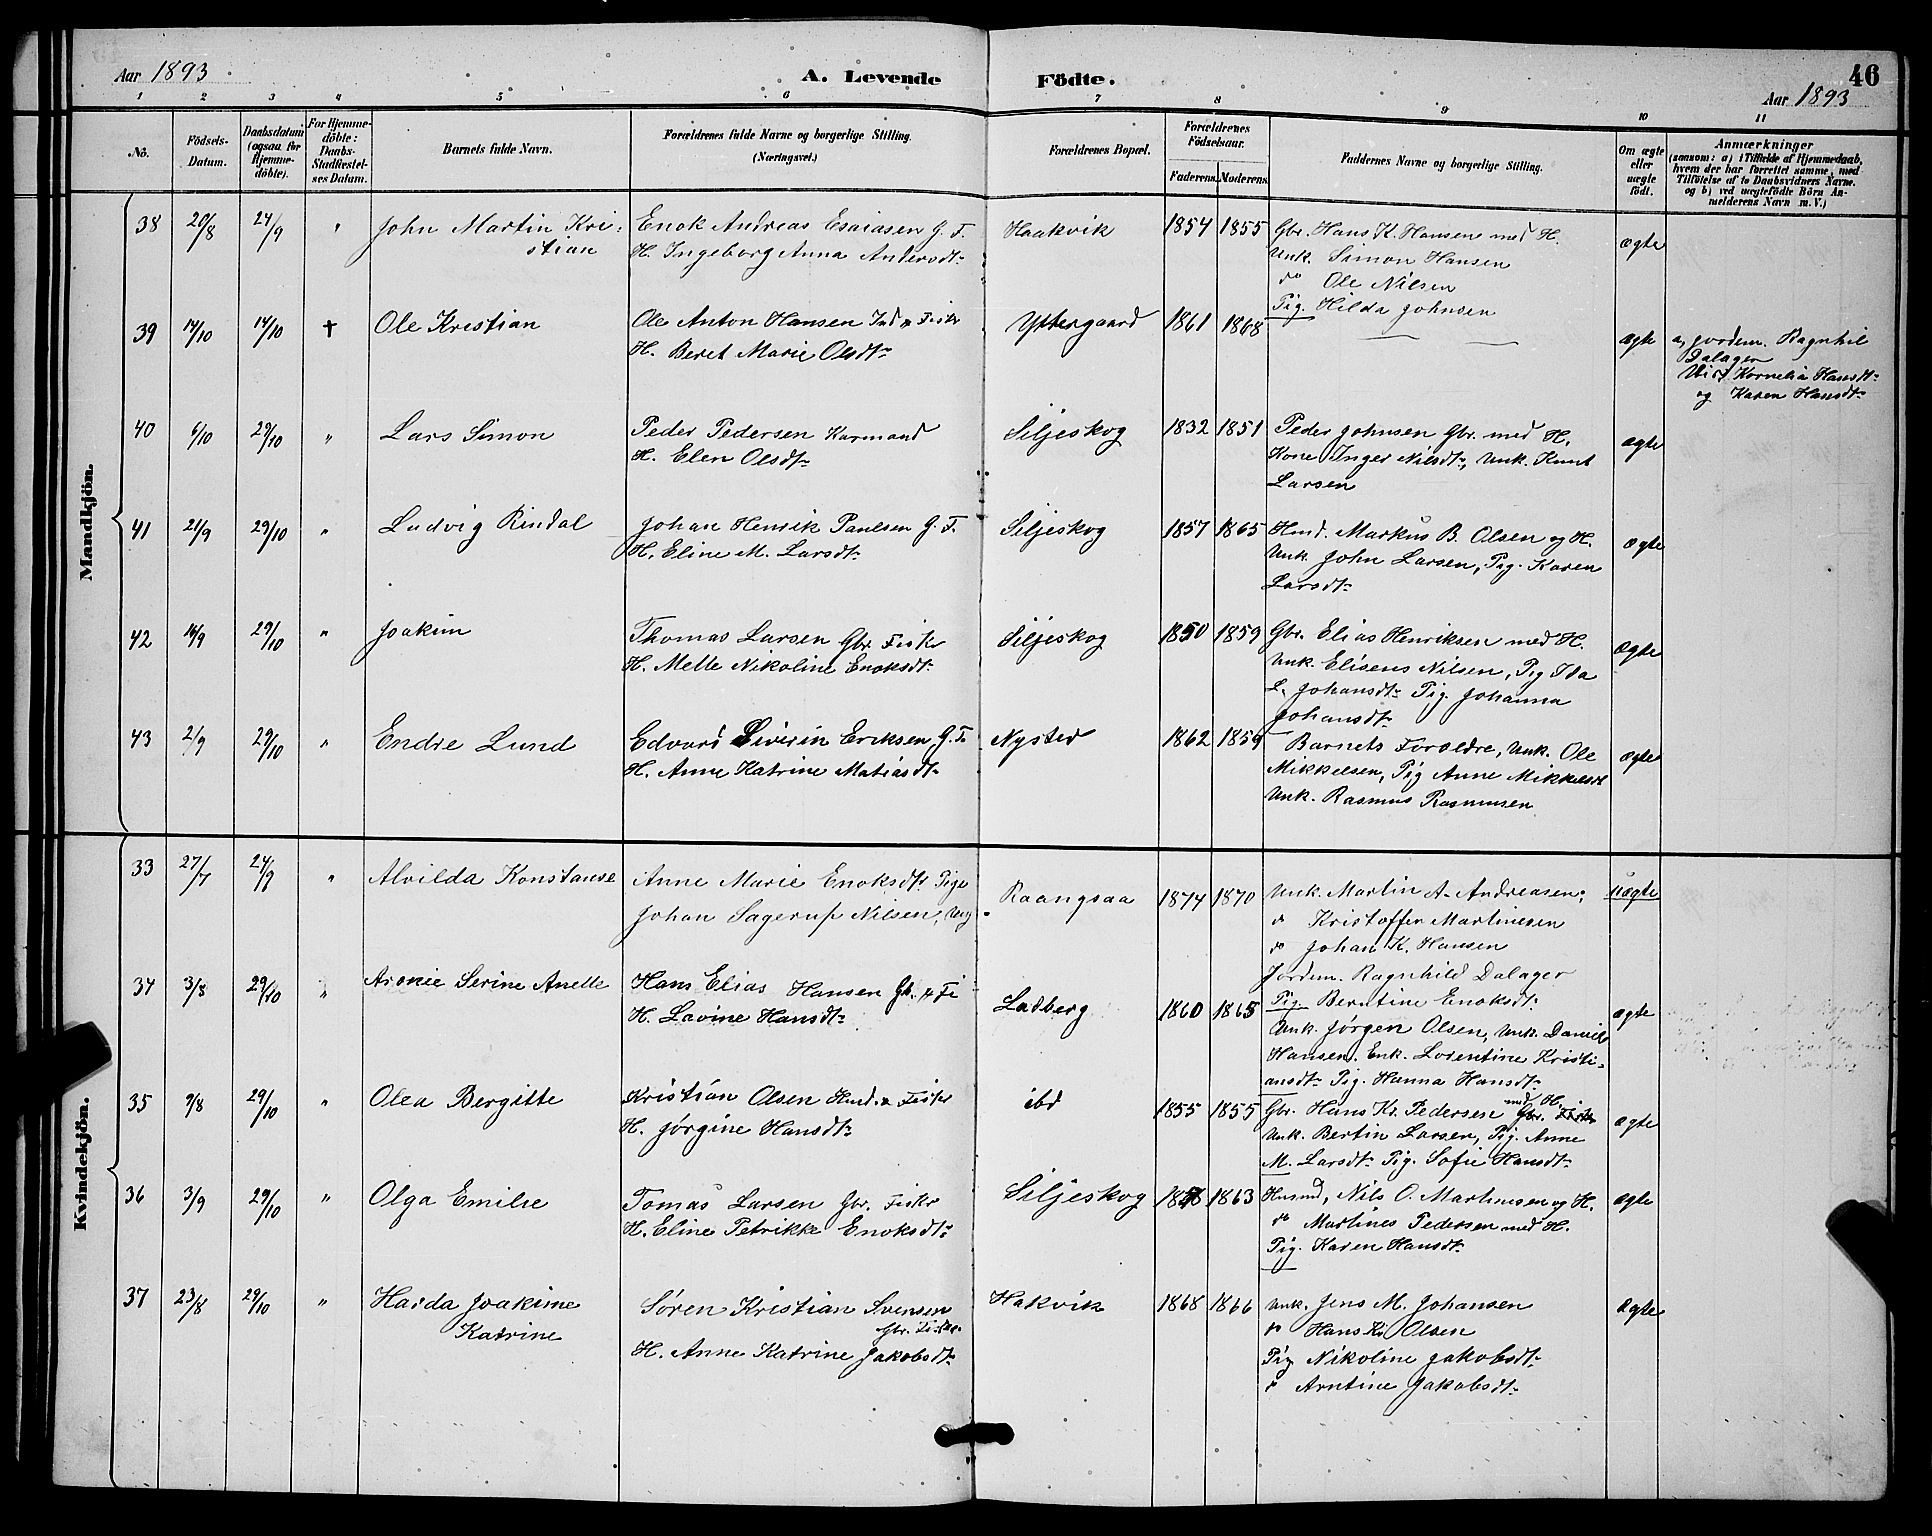 Aar 1893
A. Levende Födte.
46
Aar 1893
1 2 3 4 5 6 7 8 9 10 11
No.
Födsels-Datum.
Daabsdatum (ogsaa for Hjemme-döbte).
For Hjemme-döbte: Daabs-Stadfæstel-ses Datum.
Barnets fulde Navn.
Forældrenes fulde Navne og borgerlige Stilling.
(Næringsvei.)
Forældrenes Bopæl.
Forældrenes Födselsaar.
Faderens. Moderens.
Faddernes Navne og borgerlige Stilling.
Om ægte eller uægte födt.
Anmærkninger
(saasom: a) i Tilfælde af Hjemmedaab, hvem der har forrettet samme, med Tilföielse af to Daabsvidners Navne, og b) ved uægtefödte Börn An-melderens Navn m. V.)
Mandkjön.
38 20/8 24/9 " John Martin Kri-
stian
Enok Andreas Esaiasen G. F.
H. Ingeborg Anna Andersdt.
Haakvik 1854 1855
Gbr. Hans K. Hansen med H.
Unk. Simon Hansen
do Ole Nilsen
Pig. Hilda Johnsen
ægte
39 14/10 14/10 † Ole Kristian
Ole Anton Hansen Ind & Fisker
H. Beret Marie Olsdt.
Yttergaard 1861 1868 — —
ægte
a, Jordem. Ragnhil
Dalager
Vid. Kornelia Hansdt.
og Karen Hansdt.
40 6/10 29/10 " Lars Simon
Peder Pedersen Kaarmand
H. Elen Olsdt.
Siljeskog 1832 1851
Peder Johnsen Gbr. med H.
Kone Inger Nilsdt., Unk. Knut
Larsen
ægte
41 21/9 29/10 " Ludvig Rindal
Johan Henrik Paulsen G. F.
H. Eline M. Larsdt.
Siljeskog 1857 1865
Husd. Markus B. Olsen og H.
Unk. John Larsen, Pig. Karen
Larsdt.
ægte
42 14/9 29/10 " Joakim
Thomas Larsen Gbr. Fisker
H. Mette Nikoline Enoksdt.
Siljeskog 1850 1859
Gbr. Elias Henriksen med H.
Unk. Eliseus Nilsen, Pig Ida
L. Johansdt. Pig. Johanna
Johansdt.
ægte
43 2/9 29/10 " Endre Lund
Edvard Siverin Eriksen G. F.
H. Anne Katrine Matiasdt.
Nysted 1862 1859
Barnets Forældre, Unk. Ole
Mikkelsen, Pig Anne Mikkelsdt
Unk. Rasmus Rasmusen
ægte
Kvindekjön.
33 27/7 24/9 " Alvilda Konstanse
Anne Marie Enoksdt. Pige
Johan Sagerup Nilsen, Ung
Raangsaa 1874 1870
Unk. Martin A. Andreasen,
do Kristoffer Martinesen
do Johan K. Hansen
Jordem. Ragnhild Dalager
Pig. Berntine Enoksdt.
uægte
34 3/8 29/10 " Aronie Serine Anette
Hans Elias Hansen Gb. & Fi
H. Lavine Hansdt.
Ladberg 1860 1865
Unk. Jørgen Olsen, Unk. Daniel
Hansen. Enk. Lorentine Kristi-
ansdt. Pig. Hanna Hansdt.
ægte
35 9/8 29/10 " Olea Bergitte
Kristian Olsen Husd. & Fisker
H. Jørgine Hansdt.
ibd 1855 1855
Gbr. Hans Kr. Pedersen med H. Gbr. Fisker
Unk. Bertin Larsen, Pig. Anne
M. Larsdt. Pig. Sofie Hansdt.
ægte
36 3/9 29/10 " Olga Emilie
Tomas Larsen Gbr. Fisker
H. Eline Petrikke Enoksdt.
Siljeskog 1863
Husmd, Nils O. Martinesen og H.
do Martines Pedersen med H.
Pig. Karen Hansdt.
ægte
37 23/8 29/10 " Harda Joakime
Katrine
Søren Kristian Svensen
Gbr. Fisker
H. Anne Katrine Jakobsdt.
Hakvik 1868 1866
Unk. Jens M. Johansen
do Hans Kr. Olsen
Pig Nikoline Jakobsdt.
do Arntine Jakobsdt.
ægte